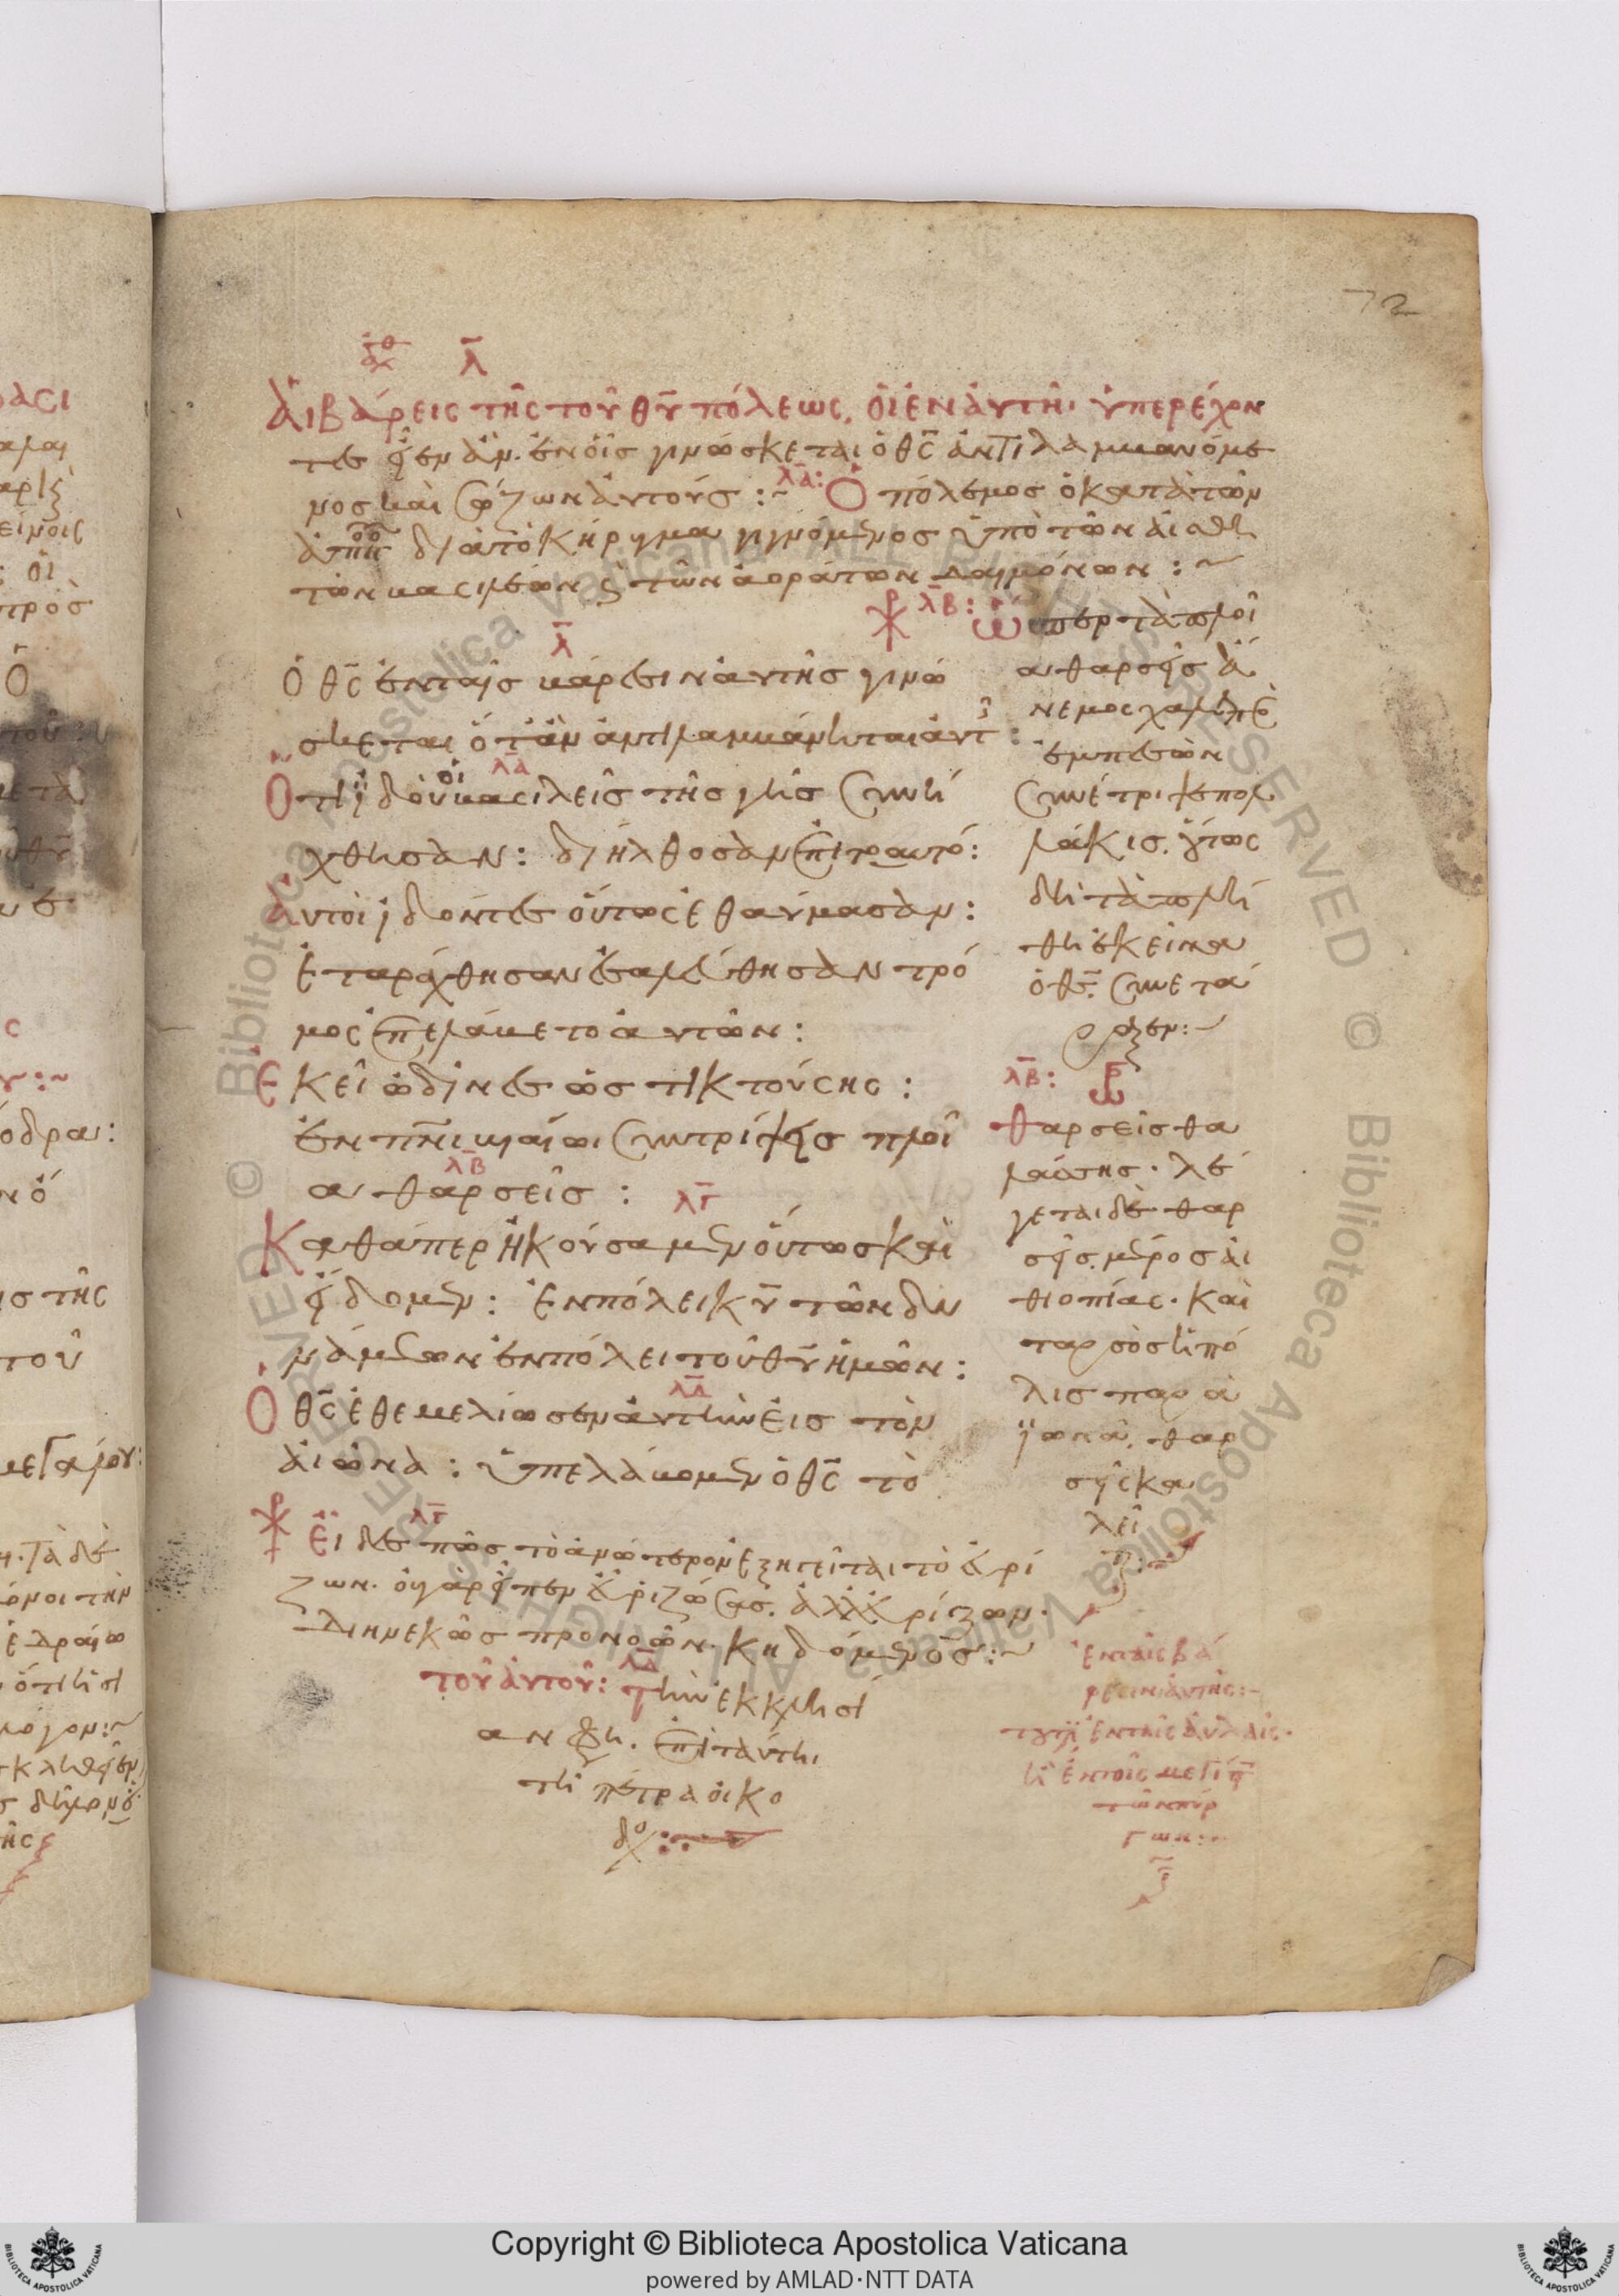 72
λ̄
Αἱ βάρεις τῆς τοῦ θῡ πόλεως, οἱ ἐν αὐτῆ· ὑπερέχον
τες εἶεν ἄν· ἐν οἷς γινώσκεται ὁ θς̄ ἀντιλαμβανόμε
νος καὶ σώζων αὐτούς :~ λᾱ: Ὁ πόλεμος ὁ κατὰ τῶν
διὰ τὸ κήρυγμα γινόμενος ὑπὸ τῶν αἰσθη
τῶν βασιλέων κ τῶν ἀοράτων δαιμόνων :~
λ̄
Ὁ θς̄ ἐν ταῖς βάρεσιν αὐτῆς γινώ
σκεται ὅταν ἀντιλαμβάνηται αὐτῆς :
λᾱ
Ὅτι ἰδοὺ οἱ βασιλεῖς τῆς γῆς συνή
χθησαν : διήλθοσαν ἐπιτοαυτό :
Αὐτοὶ ἰδόντες οὕτως ἐθαύμασαν :
Ἐταράχθησαν ἐσαλεύθησαν τρό
μος ἐπελάβετο αὐτῶν :
Ἐκεῖ ὠδῖνες ὡς τικτούσης :
ἐν πν̄ι βιαίωι συντρίψεις πλοῖ
λβ̄
α θαρσεῖς :
λγ̄
Καθάπερ ἠκούσαμεν οὕτως καὶ
εἴδομεν : Ἐν πόλει κῡ τῶν δυ
νάμεων ἐν πόλει τοῦ θῡ ἡμῶν :
λδ̄
Ὁ θς̄ ἐθεμελίωσεν αὐτὴν εἰς τὸν
αἰῶνα : ὑπελάβομεν ὁ θς̄ τὸ
λβ̄: Ὥσπερ τὰ πλοῖ
α θαρσεῖς ἄ
νεμος χαλεπὸς
ἐμπεσὼν
συνέτριψε πολ
λάκις. οὕτως
δὴ τὰ πλή
θη ἐκεῖνα
ὁ θς̄. συνετά
ραξεν :~
λβ̄:
θαρσεῖς θα
λάσσης· λέ
γεται δὲ θαρ
σεῖς. μέρος αἰ
θιοπίας· καὶ
ταρσὸς ἡ πό
λις παρὰ
ἰωνᾶ. θαρ
σεῖς κα
λεῖ
ται :~
λγ̄
Εἶδες πῶς τὸ ἀνώτερον ἐζητεῖται τὸ
ζων. οὐ γὰρ εἶπεν
διηνεκῶς προνοῶν· κηδόμενος :~
λδ̄
τοῦ αὐτοῦ: Τὴν ἐκκλησί
αν φη. ἐπὶ ταύτη
τῆ πέτρα οἰκο
δο :·
ἐν ταῖς βά
ρεσιν αὐτῆς :~
ἐν ταῖς αὐλαῖς·
ἢ ἐν τοῖς μεγί
τῶν πύρ
γων :~